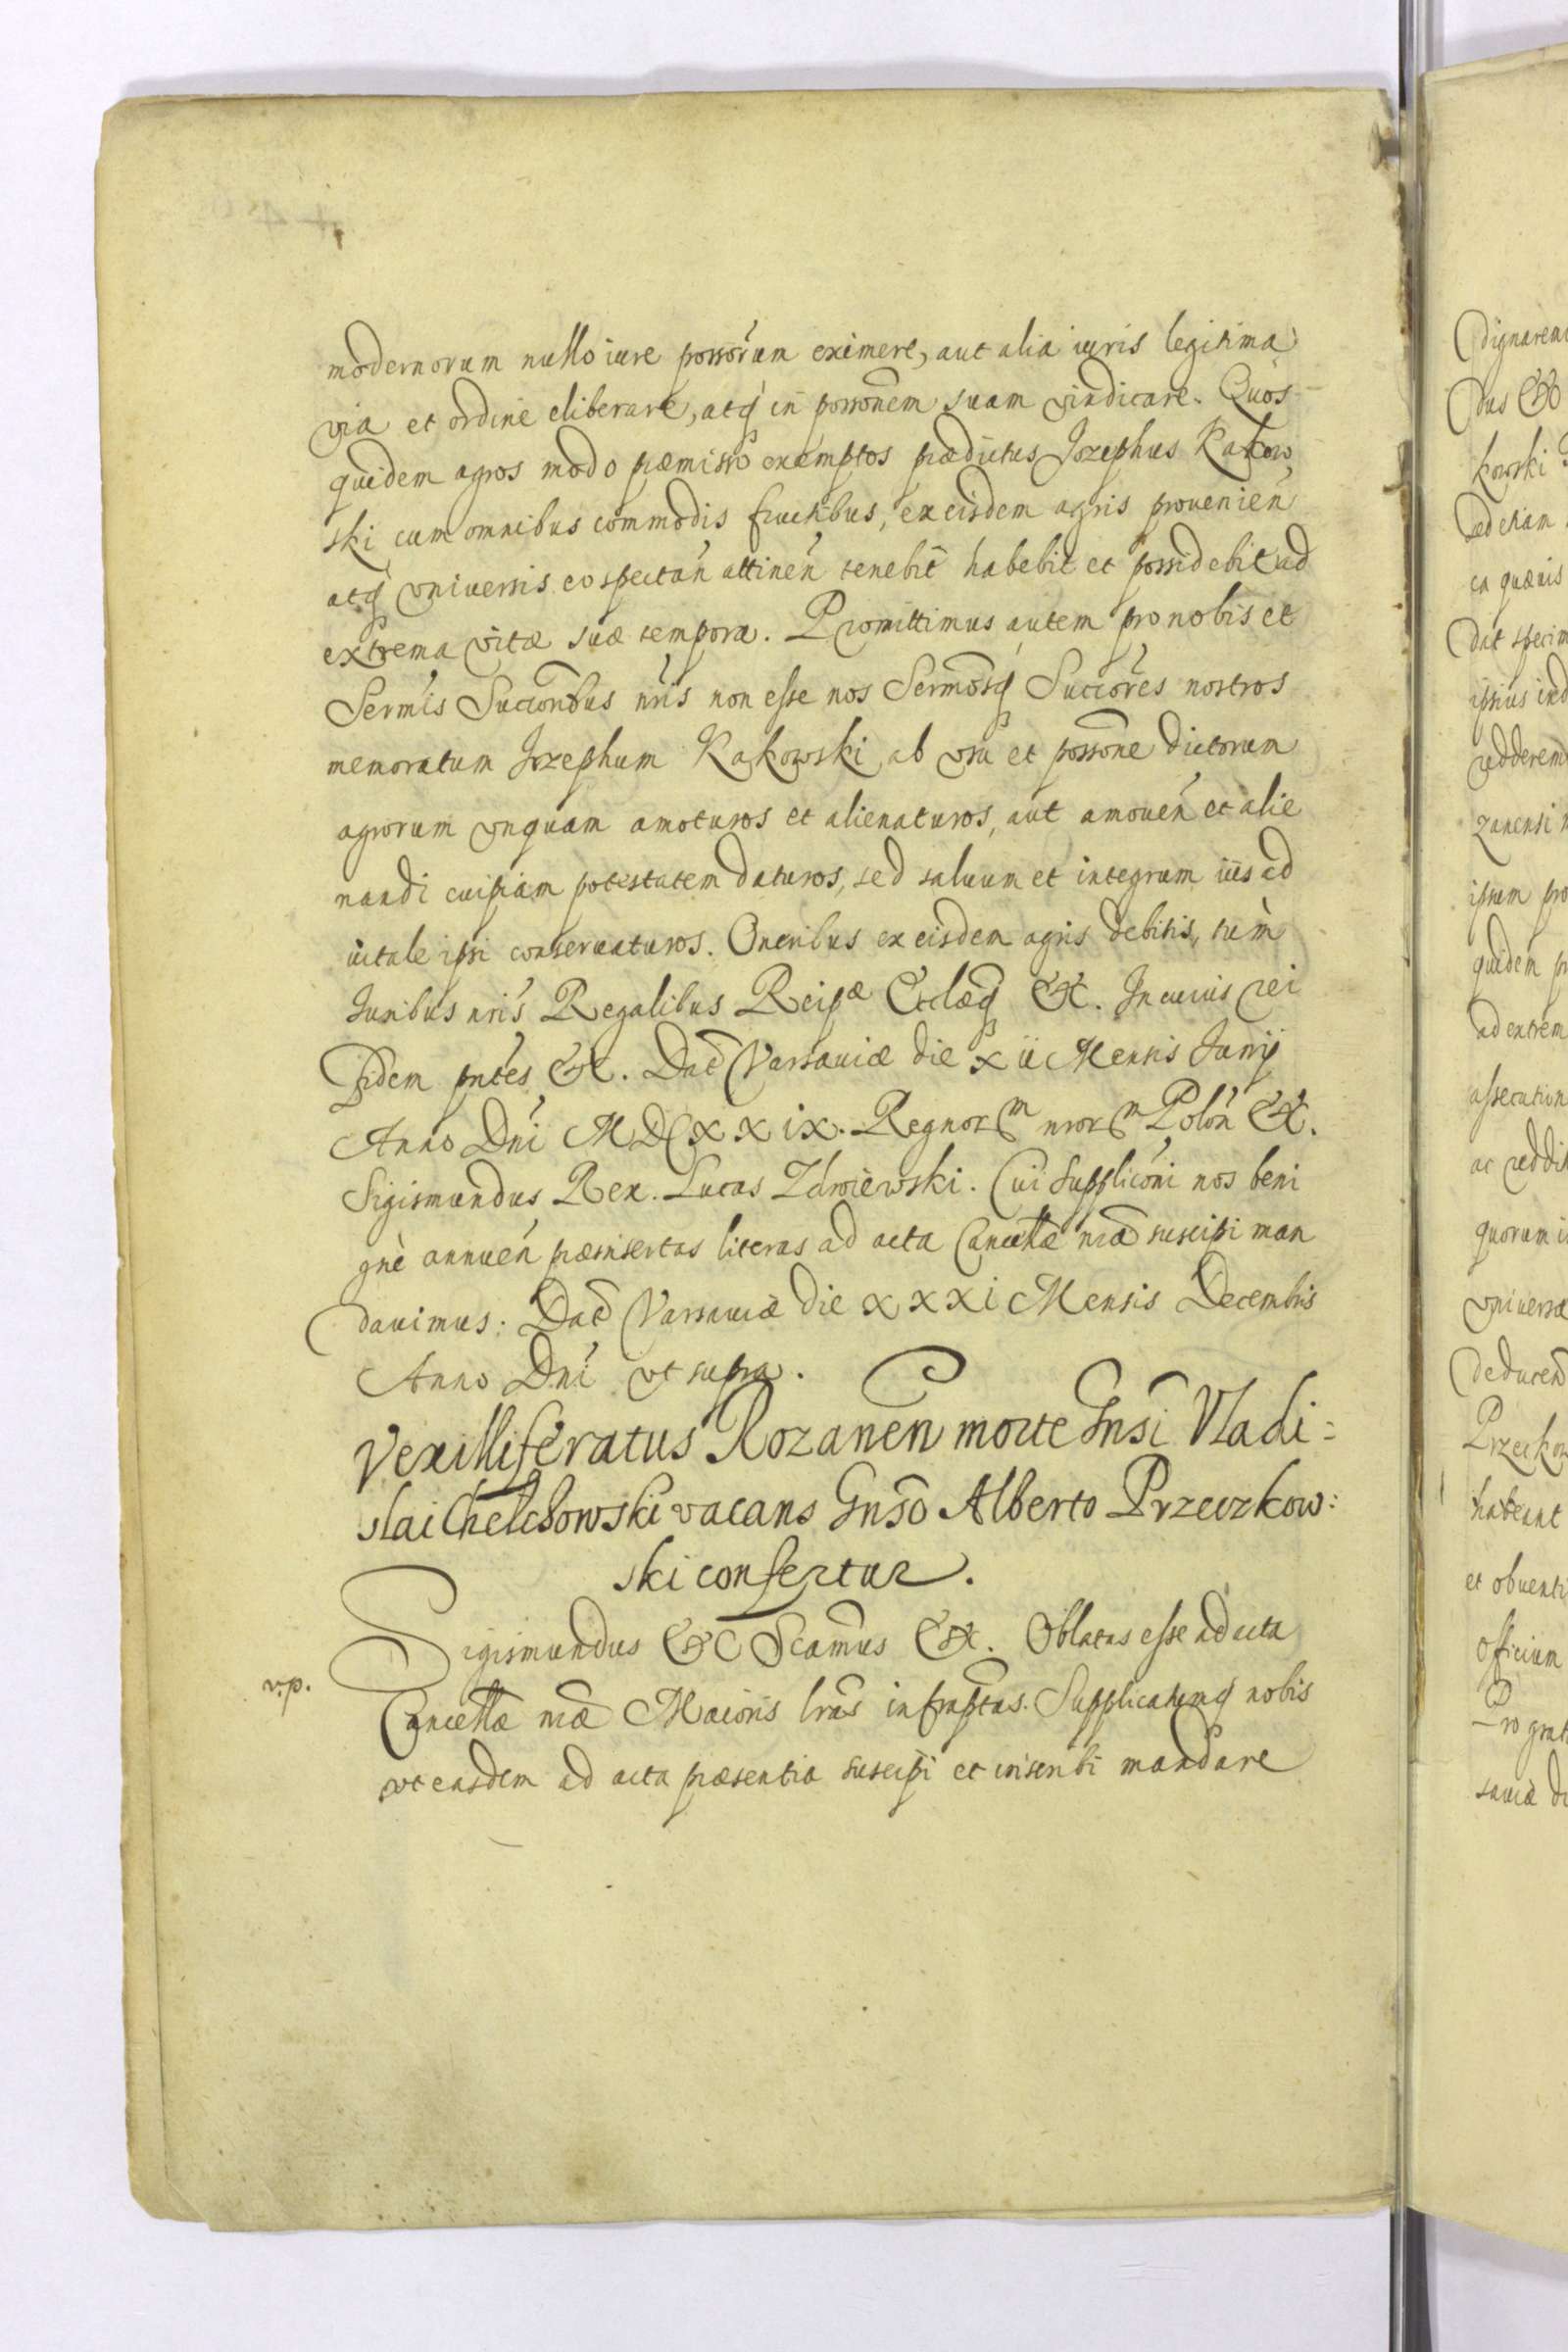 modernorum nullo iure possorum eximere, aut alia iuris legitima
via et ordine eliberare, atq in possonem suam vindicare. Quos
quidem agros modo præmisso exemptos prædictus Jozephus Kakow
ski cum omnibus commodis fructibus, ex eisdem agris prouenien
atq vniuersis eo spectan attinen tenebit habebit et possidebit ad
extrema vitæ suæ tempora. Promittimus autem pro nobis et
Sermis Succoribus nris non esse nos Sermosq Succores nostros
memoratum Jozephum Kakowski ab vsu et possone dictorum
agrorum vnquam amoturos et alienaturos, aut amouen et alie
nandi cuipiam potestatem daturos, sed saluum et integrum ius ad
uitale ipsi conseruaturos. Oneribus ex eisdem agris debitis, tum
Iuribus nris Regalibus Reipæ Ecclæq &c. In cuius rei
fidem pntes &c. Dat Varsauiæ die xii Mensis Junij
Anno Dni MDCxxix. Regnorum nrorum Polon &c.
Sigismundus Rex. Lucas Zdroiewski. Cui suppliconi nos beni
gnè annuen præinsertas literas ad acta Cancellæ nræ suscipi man
dauimus: Dat Varsauiæ die xxxi Mensis Decembris
Anno Dni vt supra.
Vexilliferatus Rozanen morte Gnsi Vladi=
slai Chelchowski vacans Gnso Alberto Przeczkow:
ski confertur.
Sigismundus &c Scamus &c. Oblatas esse ad acta
v.p.
Cancellæ nræ Maioris lras infraptas. Supplicatumq nobis
vt easdem ad acta præsentia suscipi et inscribi mandare
Dignarem
dus &c
kowski
sed etiam
ea quæuis
dat specim
ipsius ind
redderem
zanensi
ipsum pro
quidem
ad extrem
assecution
ac reddit
quorum
vniuersæ
deducend
Przeczkow
habeant
et obuenti
officium
Pro grat
sauiæ di